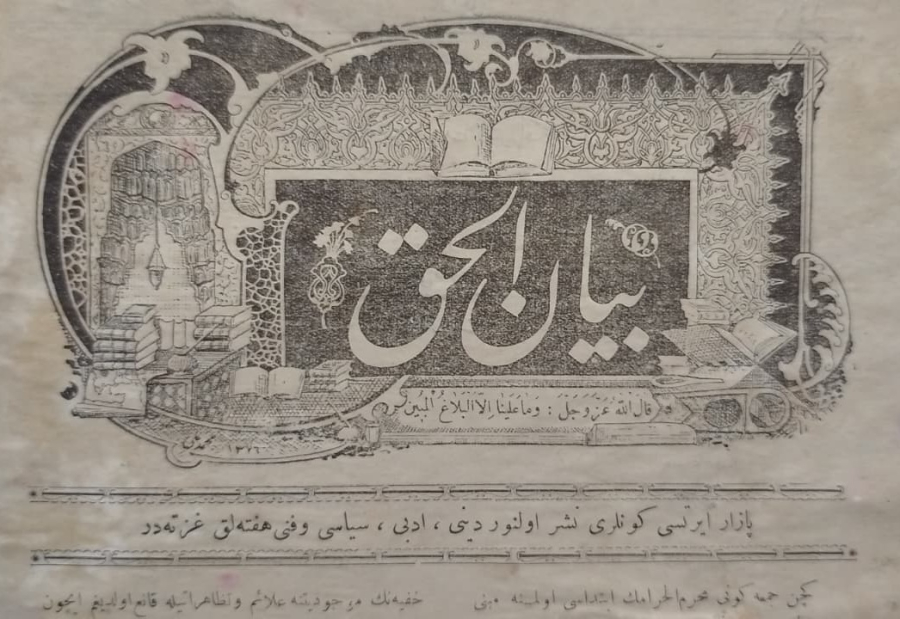 بيان الحق
قال الله عز وجل : وما علينا الا البلاغ المبين
١٣٢٦
پازار ايرتسى كونلرى نشر اولنور دينى ، ادبى ، سياسى وفنى هفته لق غزته در
كچن جمعه كونى محرم الحرامك ابتداسى اولمسنه مبنى
خفيه نك موجوديتنه علائم وتظاهراتيله قانع اولديغم ايچون